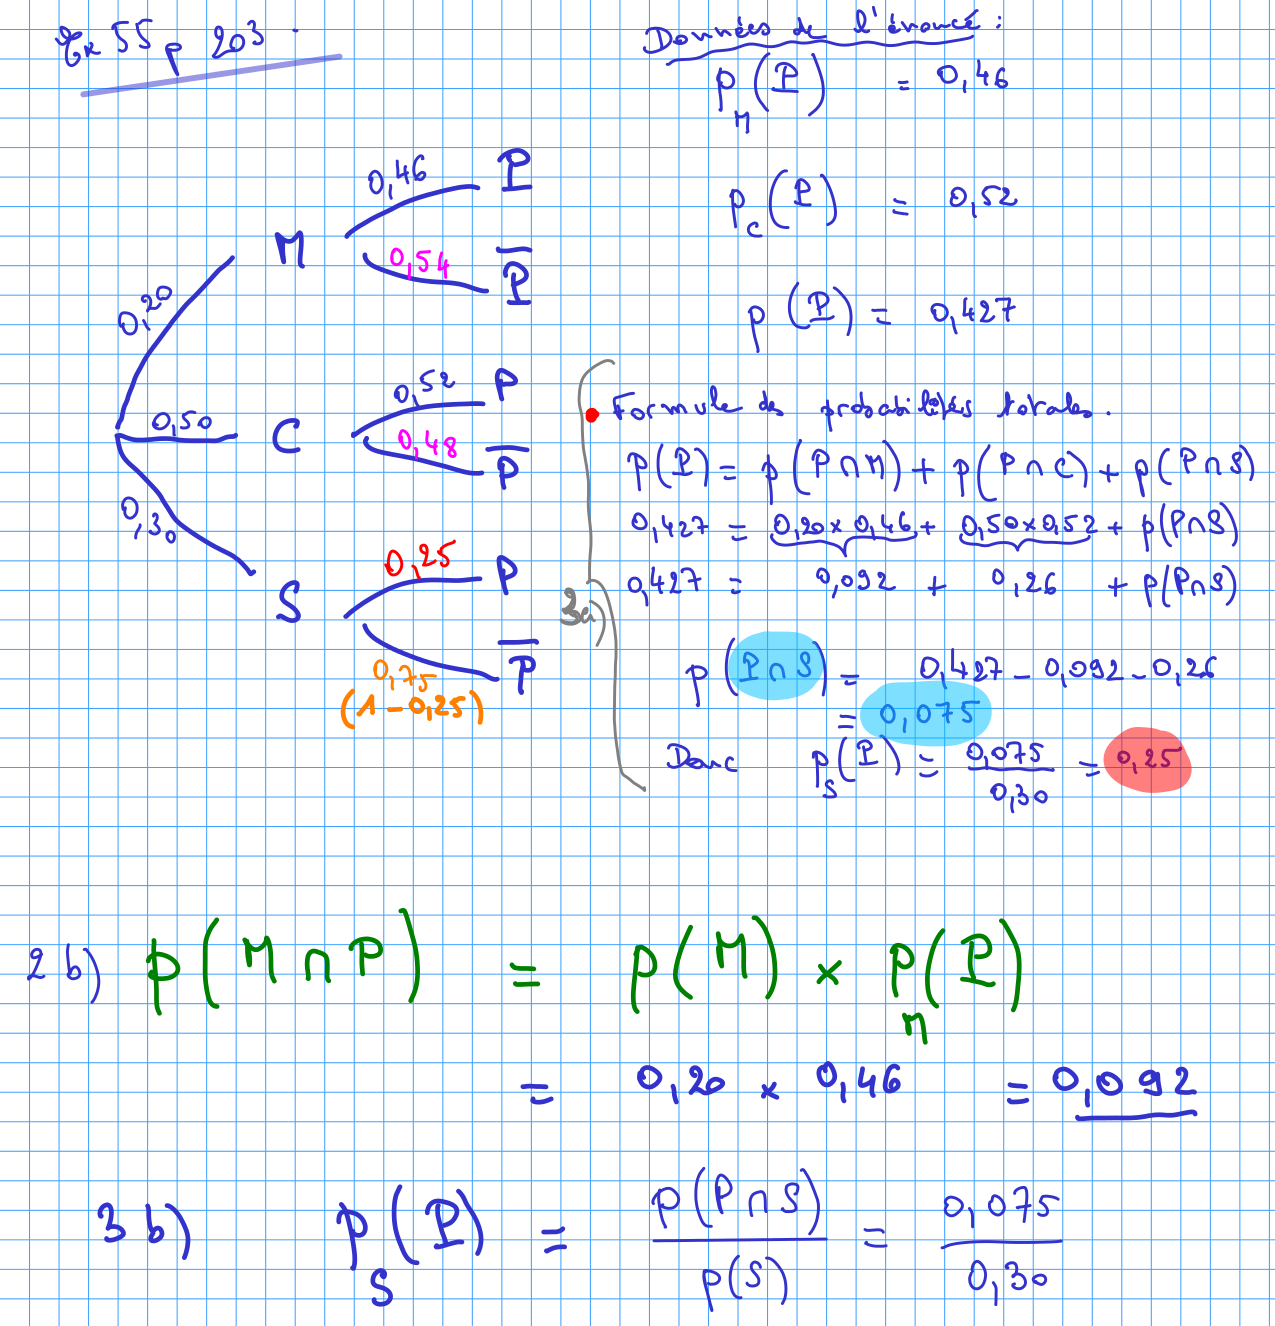 Ex 55 p 203.
Données de l'énoncé :
p_M(P) = 0,46
p_C(P) = 0,52
p(P) = 0,427
0,20 M
0,46 P
0,54 P̅
0,50 C
0,52 P
0,48 P̅
0,30 S
0,25 P
0,75 P̅
(1 - 0,25)
3a)
• Formule des probabilités totales.
p(P) = p(P∩M) + p(P∩C) + p(P∩S)
0,427 = 0,20 × 0,46 + 0,50 × 0,52 + p(P∩S)
0,427 = 0,092 + 0,26 + p(P∩S)
p(P∩S) = 0,427 - 0,092 - 0,26
= 0,075
Donc p_S(P) = 0,075/0,30 = 0,25
2 b) p(M∩P) = p(M) × p_M(P)
= 0,20 × 0,46 = 0,092
3 b) p_S(P) = p(P∩S)/p(S) = 0,075/0,30